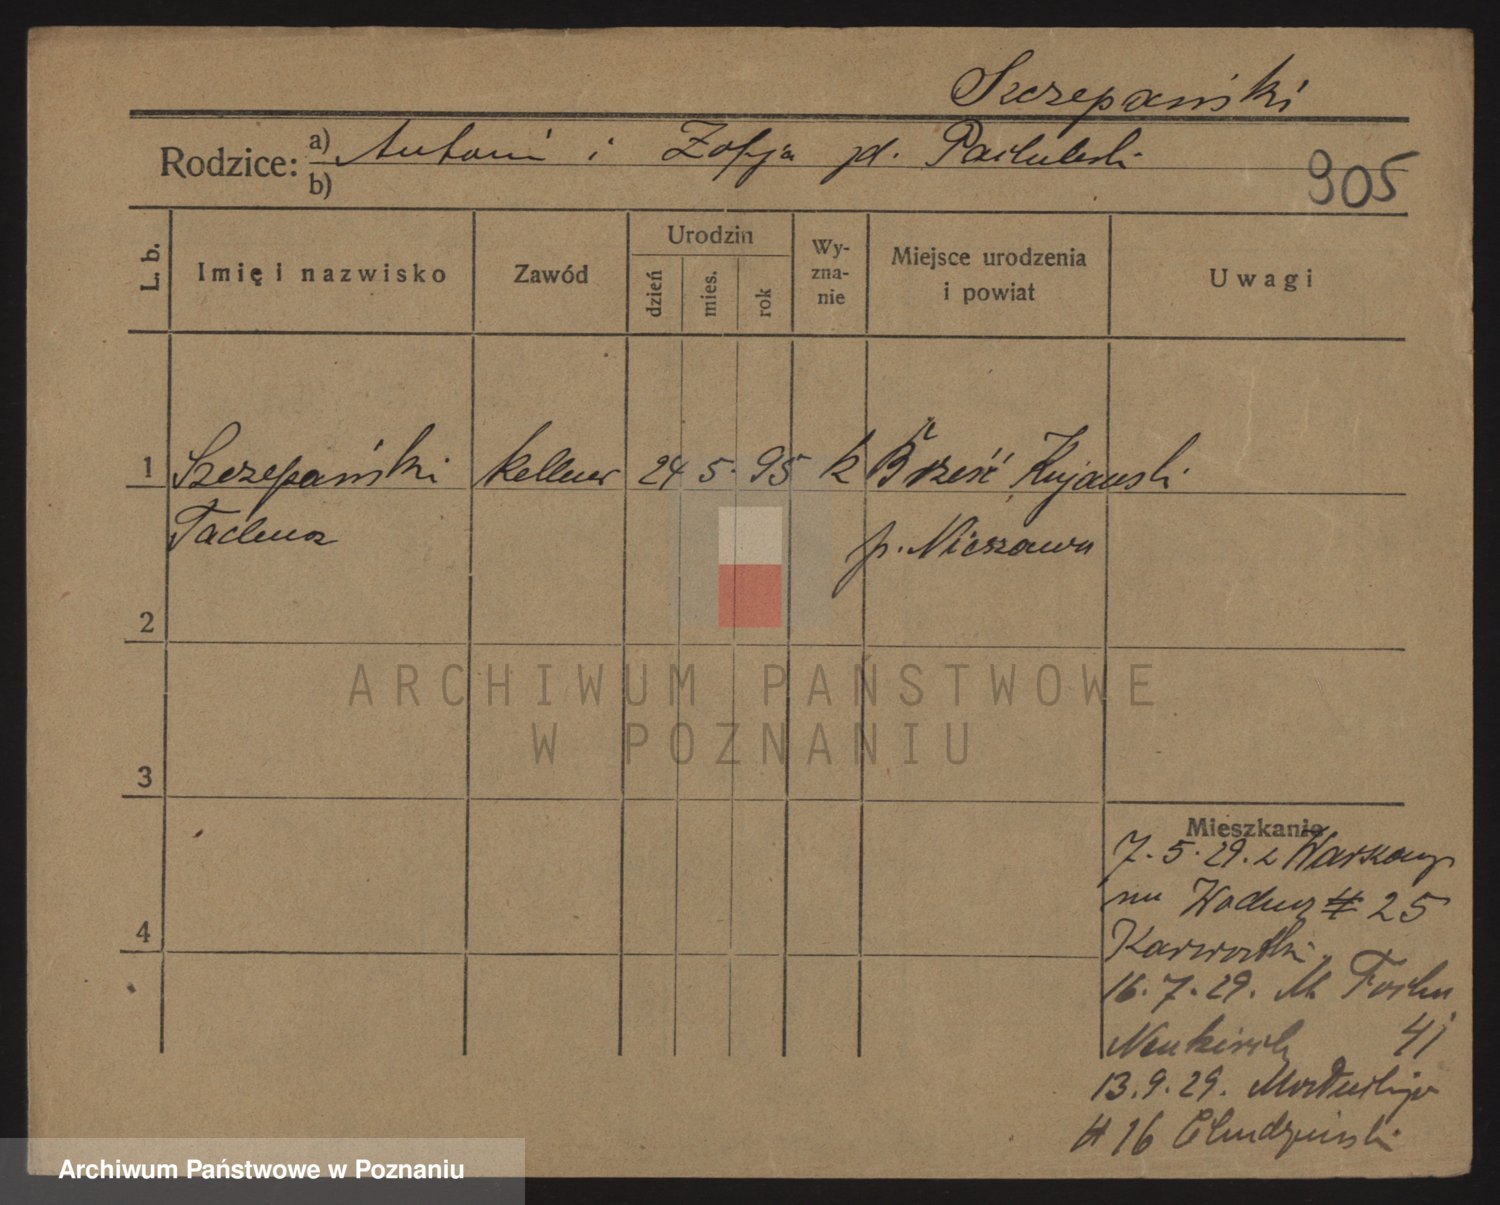 Szczepański
Rodzice: a) Antoni i Zofja
b)
905
L. b.
Imię i nazwisko
Zawód
Urodzin
dzień
mies.
rok
Wy-
zna-
nie
Miejsce urodzenia
i powiat
Uwagi
1 Szczepański kellner 24 5. 95 k Brześć Kujawski
Tadeusz p. Nieszawa
2
3
4
ARCHIWUM PAŃSTWOWE
W POZNANIU
Mieszkanie
7. 5. 29. z Warszawy
na 25
16. 7. 29. M.
Neukirch 41
13. 9. 29.
16 Chudziński
Archiwum Państwowe w Poznaniu